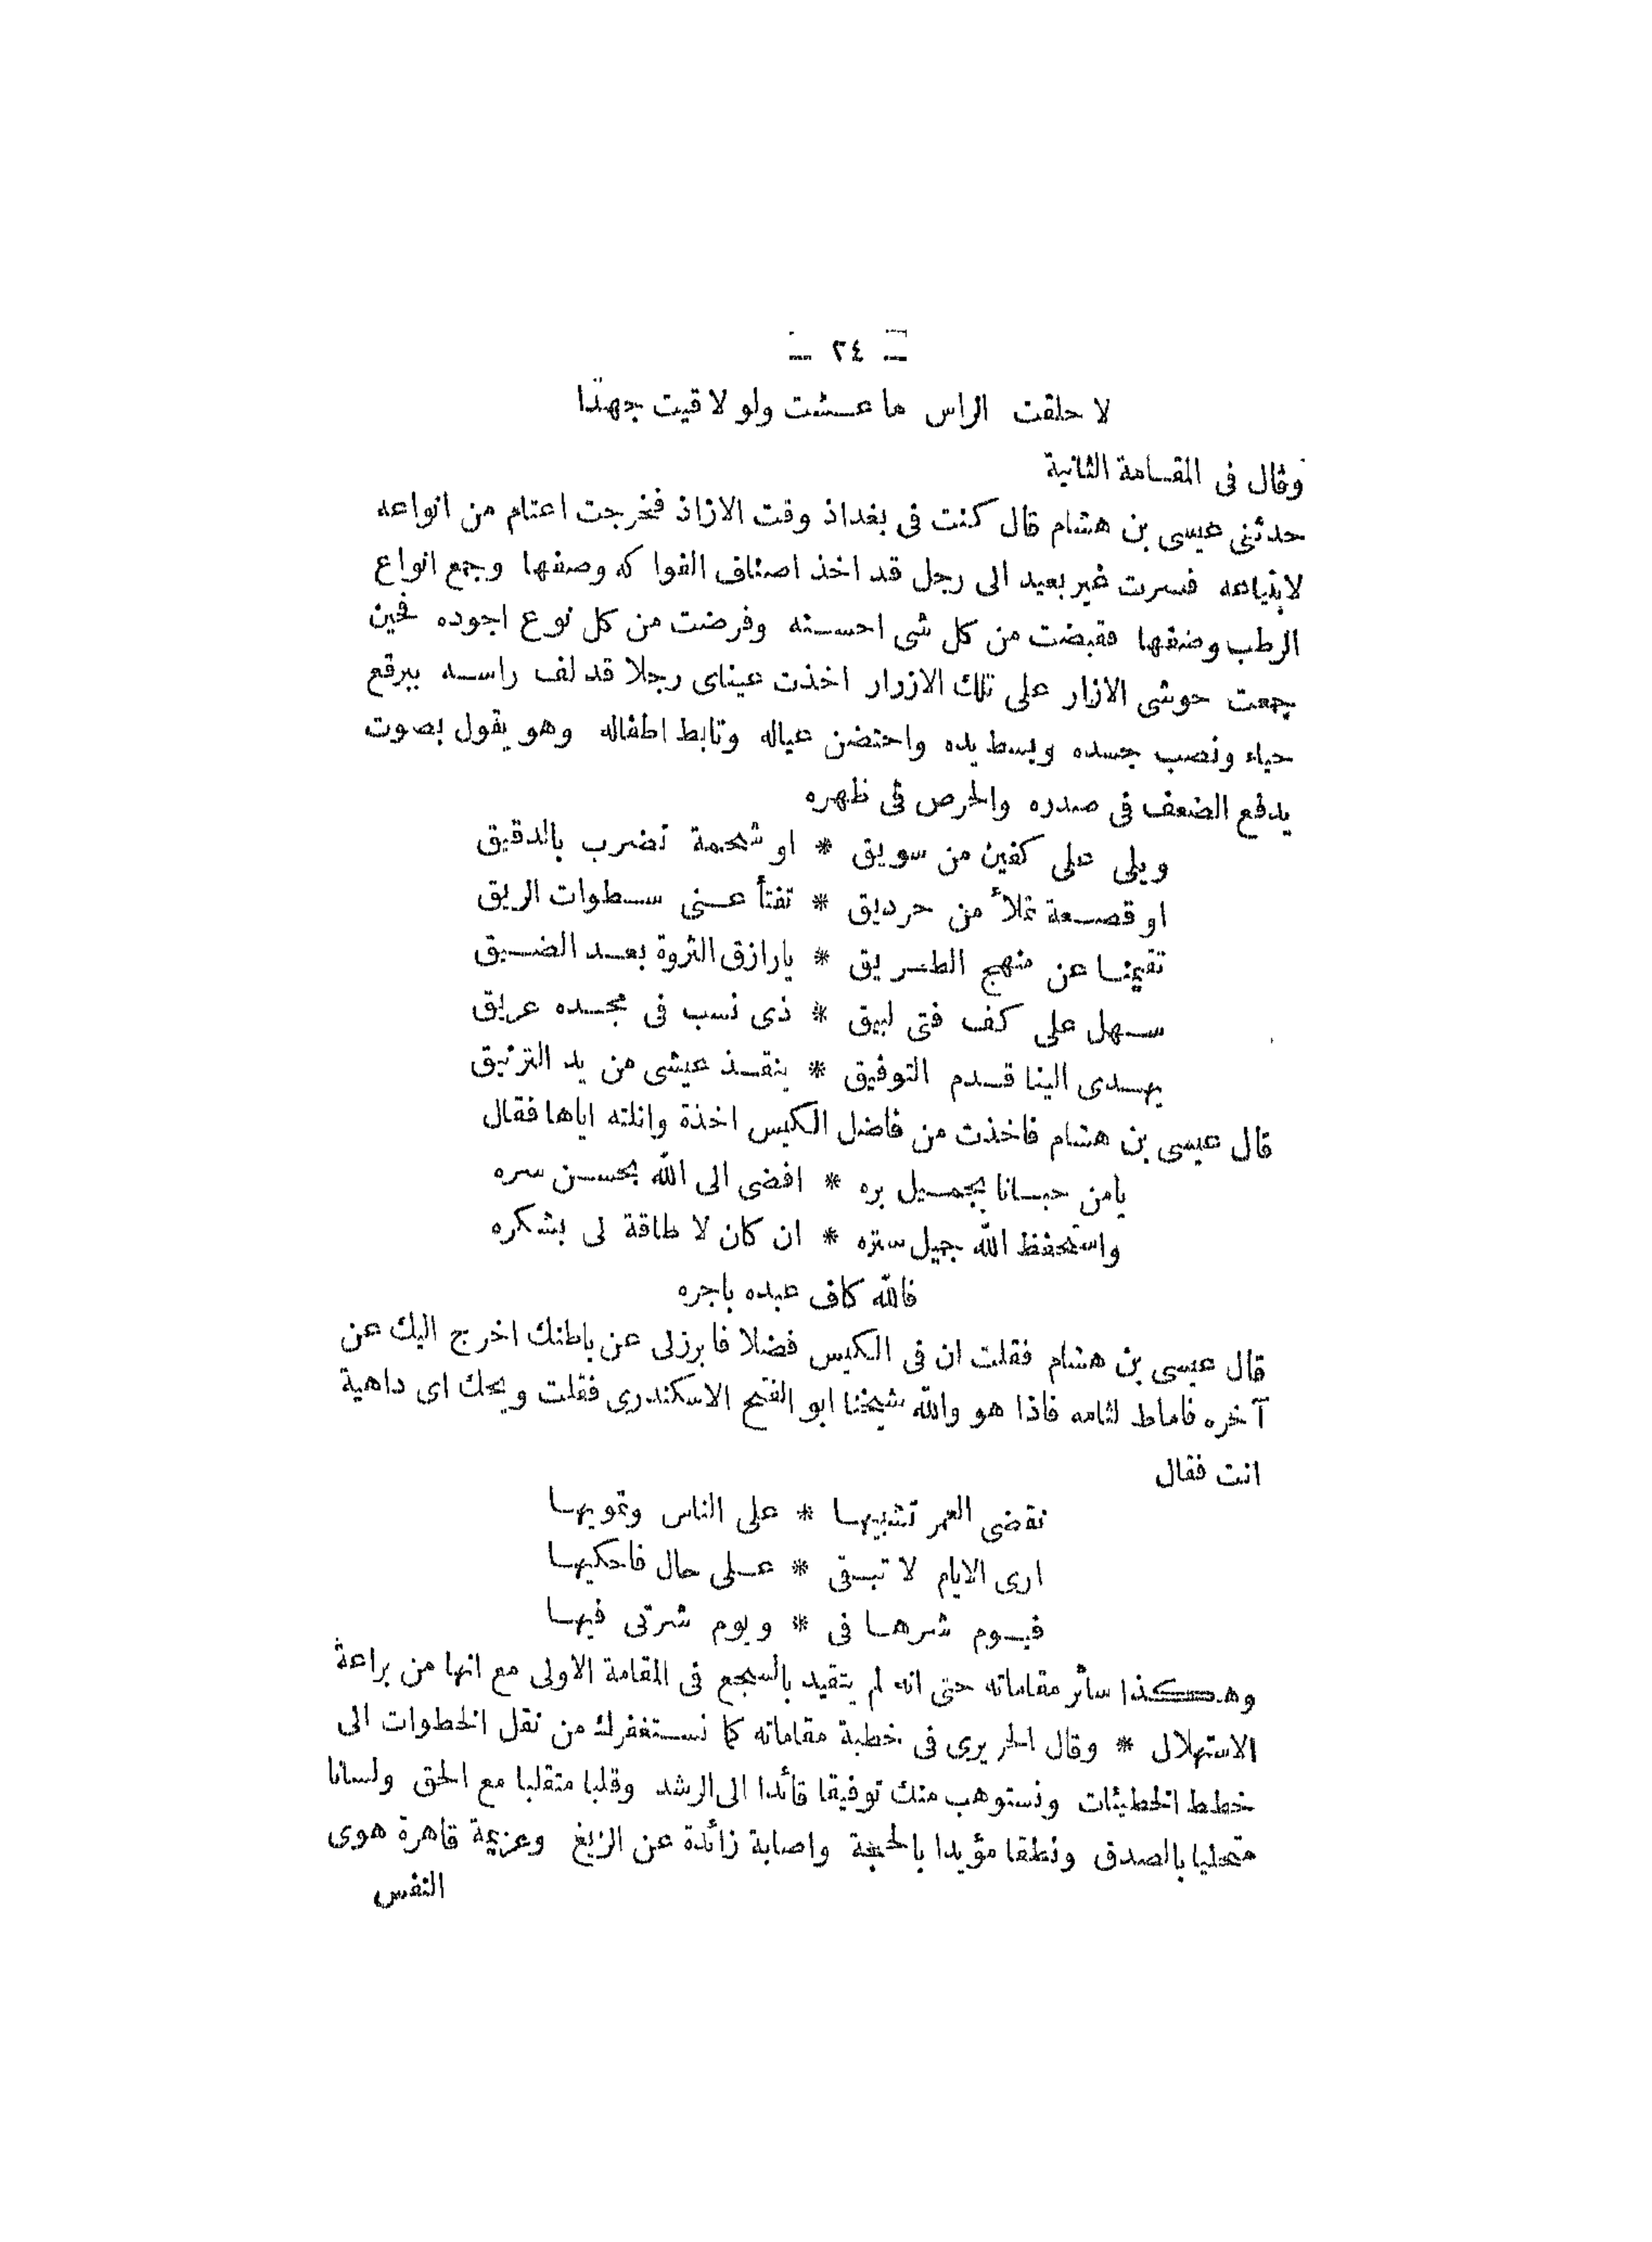 — ٢٤ —
لا حلقت الراس ما عشت ولو لاقيت جهدا
وقال فى المقامة الثانية
حدثنى عيسى بن هشام قال كنت فى بغداذ وقت الازاذ فخرجت اعتام من انواعه
لابتياعه فسرت غير بعيد الى رجل قد اخذ اصناف الفواكه وصفها وجمع انواع
الرطب وصنفها فقبضت من كل شى احسنه وفرضت من كل نوع اجوده فحين
جمعت حوشى الازار على تلك الازرار اخذت عيناى رجلا قد لف راسه ببرقع
حياء ونصب جسده وبسط يده واحتضن عياله وتابط اطفاله وهو يقول بصوت
يدفع الضعف فى صدره والحرص فى ظهره
ويلى على كفين من سويق * او شحمة تضرب بالدقيق
او قصعة تملأ من حرديق * تفتأ عنى سطوات الريق
تقيمنا عن منهج الطريق * يارازق الثروة بعد الضيق
سهل على كف فتى لبيق * ذى نسب فى مجده عريق
يهدى الينا قدم التوفيق * ينقذ عيشى من يد الترنيق
قال عيسى بن هشام فاخذت من فاضل الكيس اخذة وانلته اياها فقال
يامن حبانا بجميل بره * افضى الى الله بحسن سره
واستحفظ الله جميل ستره * ان كان لا طاقة لى بشكره
فالله كاف عبده باجره
قال عيسى بن هشام فقلت ان فى الكيس فضلا فابرزلى عن باطنك اخرج اليك عن
آخره فاماط لثامه فاذا هو والله شيخنا ابو الفتح الاسكندرى فقلت ويحك اى داهية
انت فقال
نقضى العمر تشبيها * على الناس وتمويها
ارى الايام لا تبقى * على حال فاحكيها
فيوم شرها فى * ويوم شرتى فيها
وهكذا سائر مقاماته حتى انه لم يتقيد بالسجع فى المقامة الاولى مع انها من براعة
الاستهلال * وقال الحريرى فى خطبة مقاماته كما نستغفرك من نقل الخطوات الى
خطط الخطيئات ونستوهب منك توفيقا قائدا الى الرشد وقلبا متقلبا مع الحق ولسانا
متحليا بالصدق ونطقا مؤيدا بالحجة واصابة زائدة عن الزيغ وعزيمة قاهرة هوى
النفس